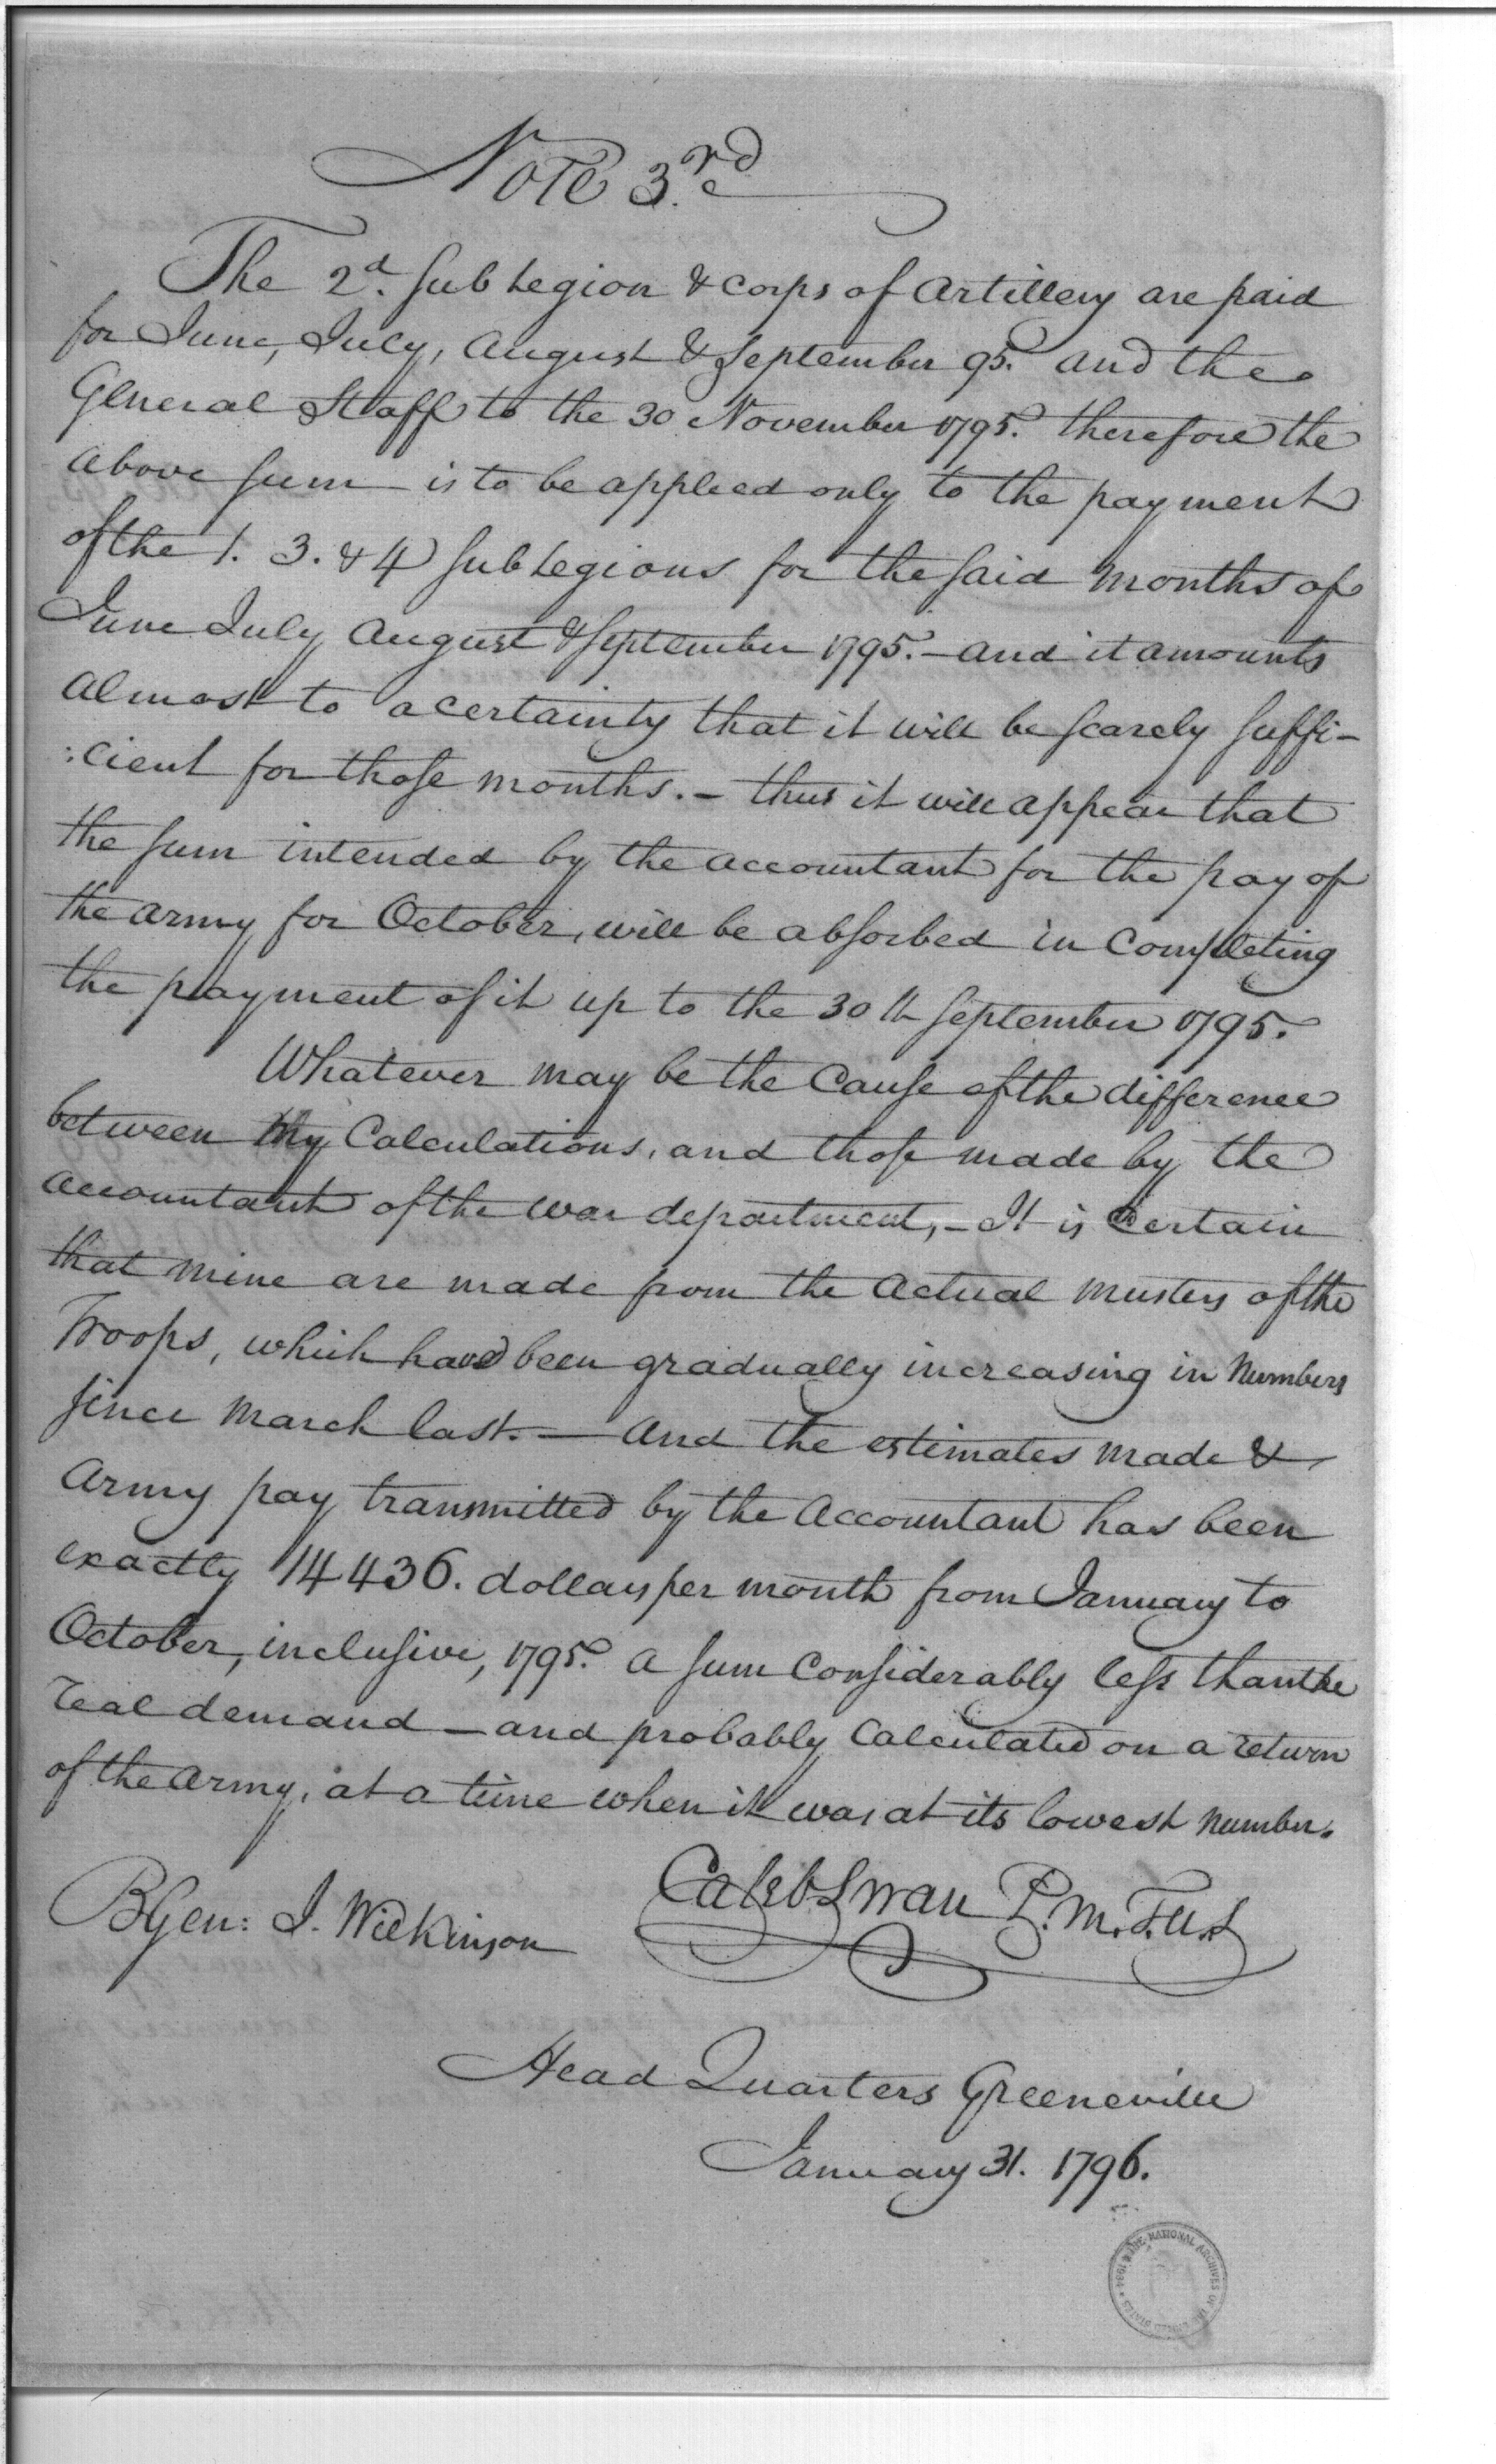 Note 3.rd
The 2d. Sub Legion & Corps of Artillery are paid
for June, July, August & September 95. and the
General Staff to the 30 November 1795. therefore the
above sum is to be applied only to the payment
of the 1. 3. & 4 Sub Legions for the said months of
June July August & September 1795. - and it amounts
almost to a certainty that it will be scarely suffi-
:cient for those months. - thus it will appear that
the sum intended by the accountant for the pay of
the army for October, will be absorbed in Completing
the payment of it up to the 30th September 1795.
Whatever may be the Cause of the difference
between My Calculations, and those made by the
accountant of the war department, - It is Certain
that mine are made from the Actual musters of the
Troops, which have been gradually increasing in Numbers
since March last. — And the estimates made &
Army pay transmitted by the Accountant has been
exactly 14436. dollars per month from January to
October, inclusive, 1795. a sum Considerably less than the
real demand — and probably Calculated on a return
of the army, at a time when it was at its lowest number.
BGen: J. Wilkinson Caleb Swan P.M.T.U.S
Head Quarters Greeneville
January 31. 1796.
NATIONAL ARCHIVES OF THE UNITED STATES 1934